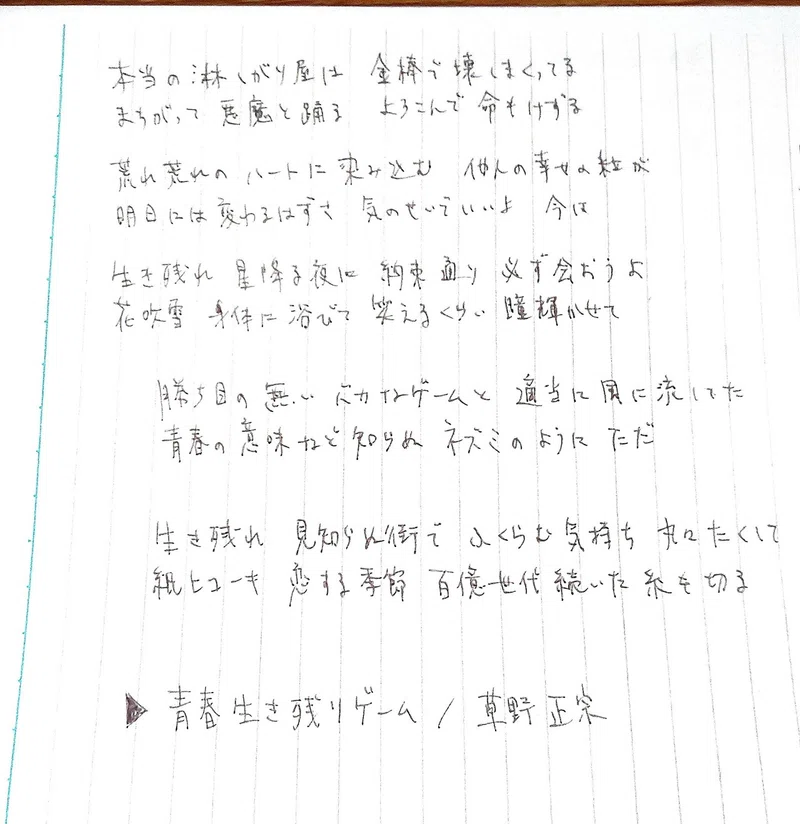 本当の淋しがり屋は 金棒で壊しまくってる
まちがって悪魔と踊る よろこんで命もけずる
荒れ荒れのハートに染み込む 他人の幸せの粒が
明日には変わるはずさ 気のせいでいいよ 今は
生き残れ 星降る夜に 約束通り 必ず会おうよ
花吹雪 身体に浴びて 笑えるくらい 瞳輝かせて
勝ち目の無い バカなゲームと 適当に風に流してた
青春の意味など知らぬ ネズミのように ただ
生き残れ 見知らぬ街で ふくらむ気持ち
紙ヒコーキ 恋する季節 百億世代続いた 糸を切る
▶ 青春生き残りゲーム / 草野正宗